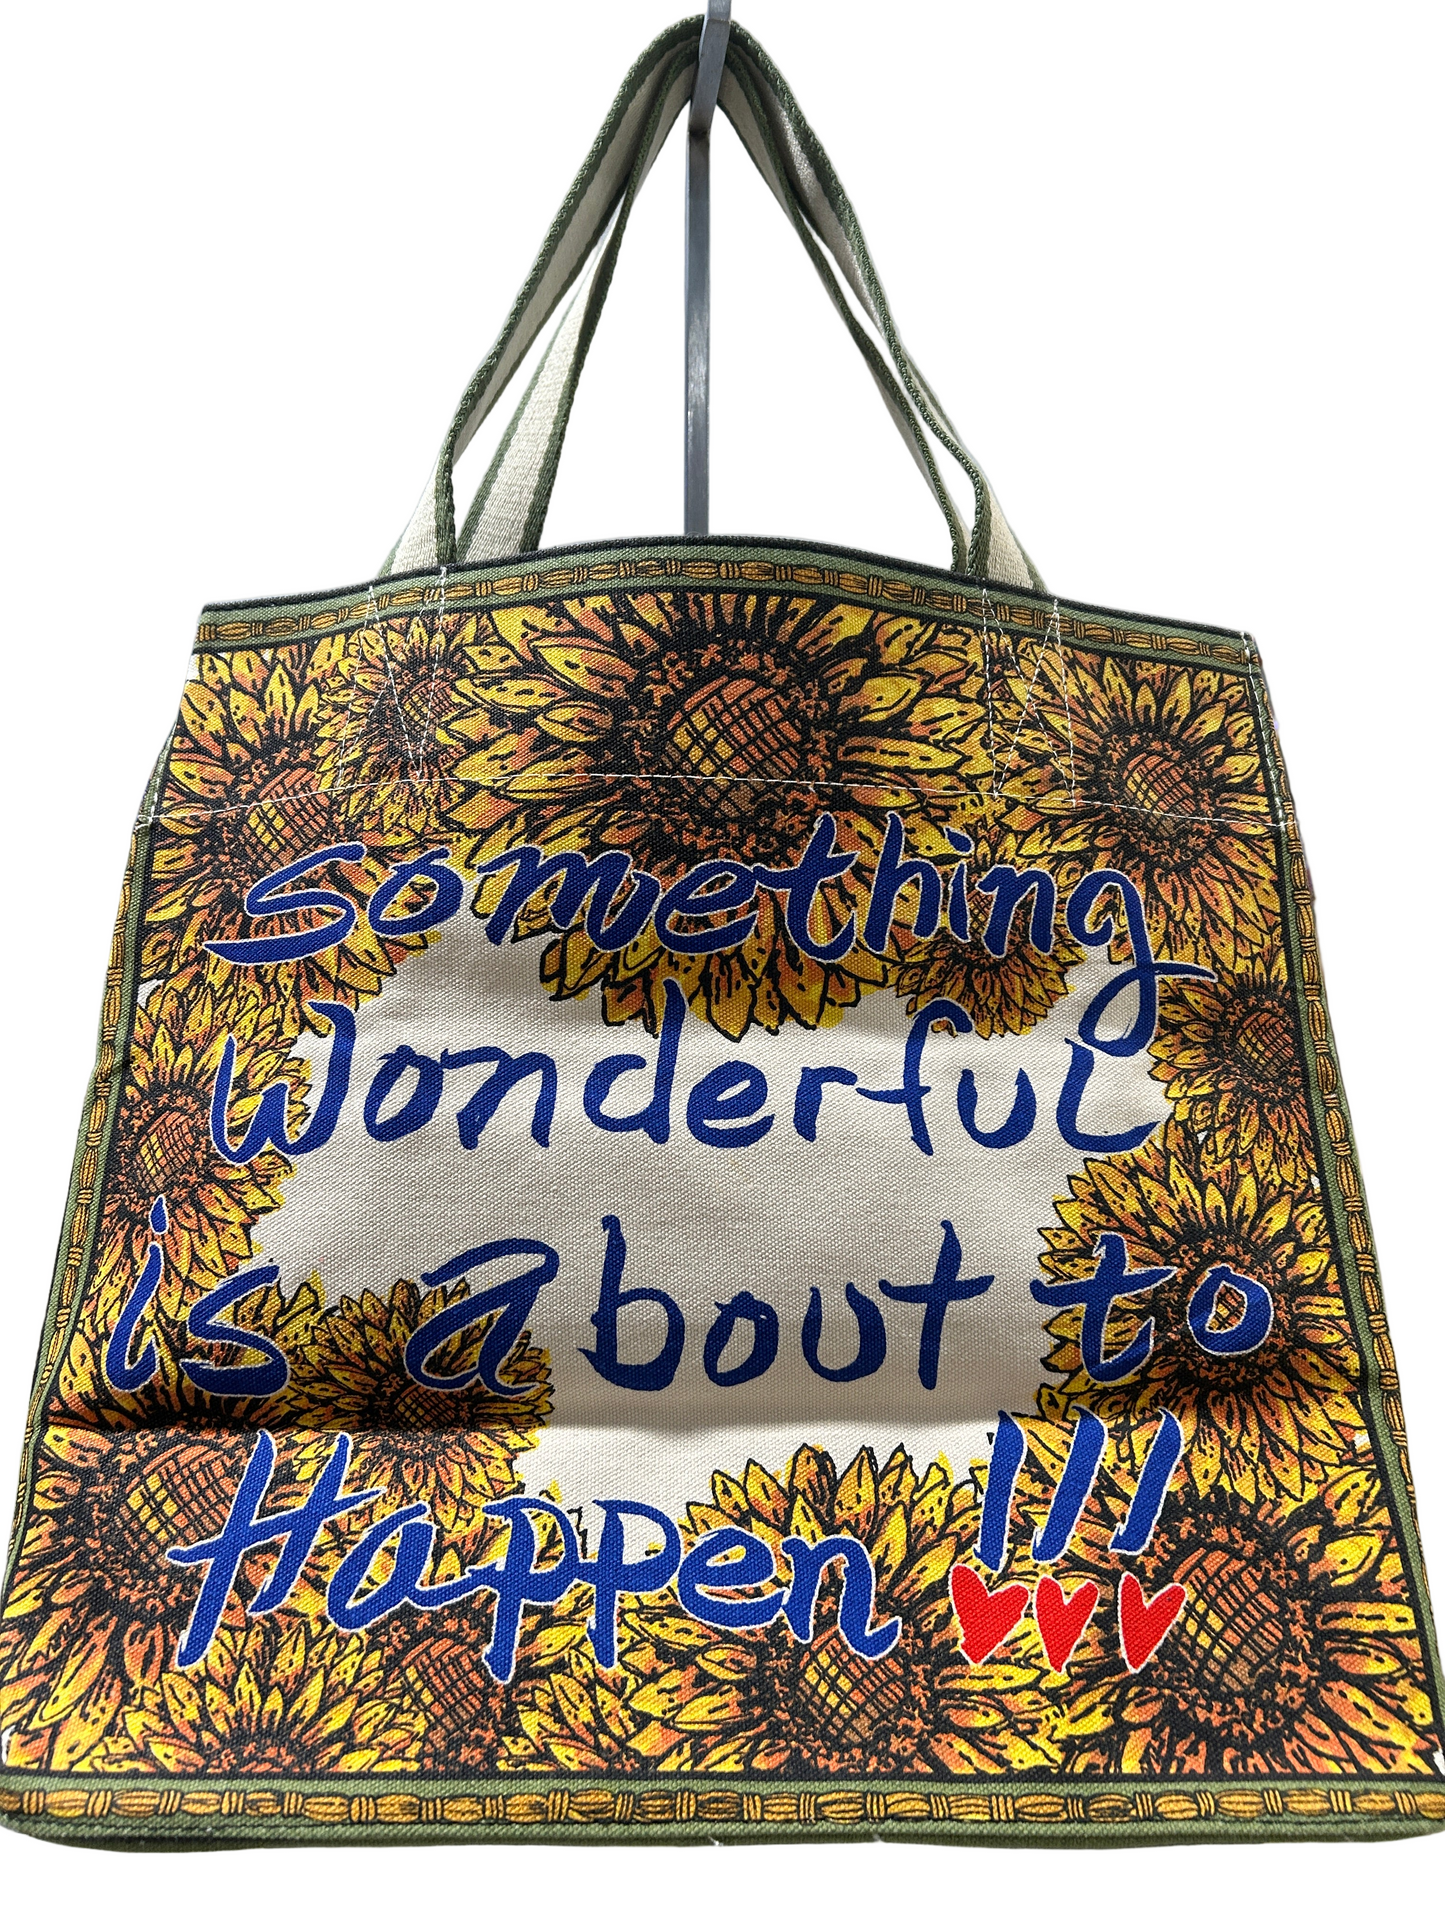 something
Wonderful
is about to
Happen !!!